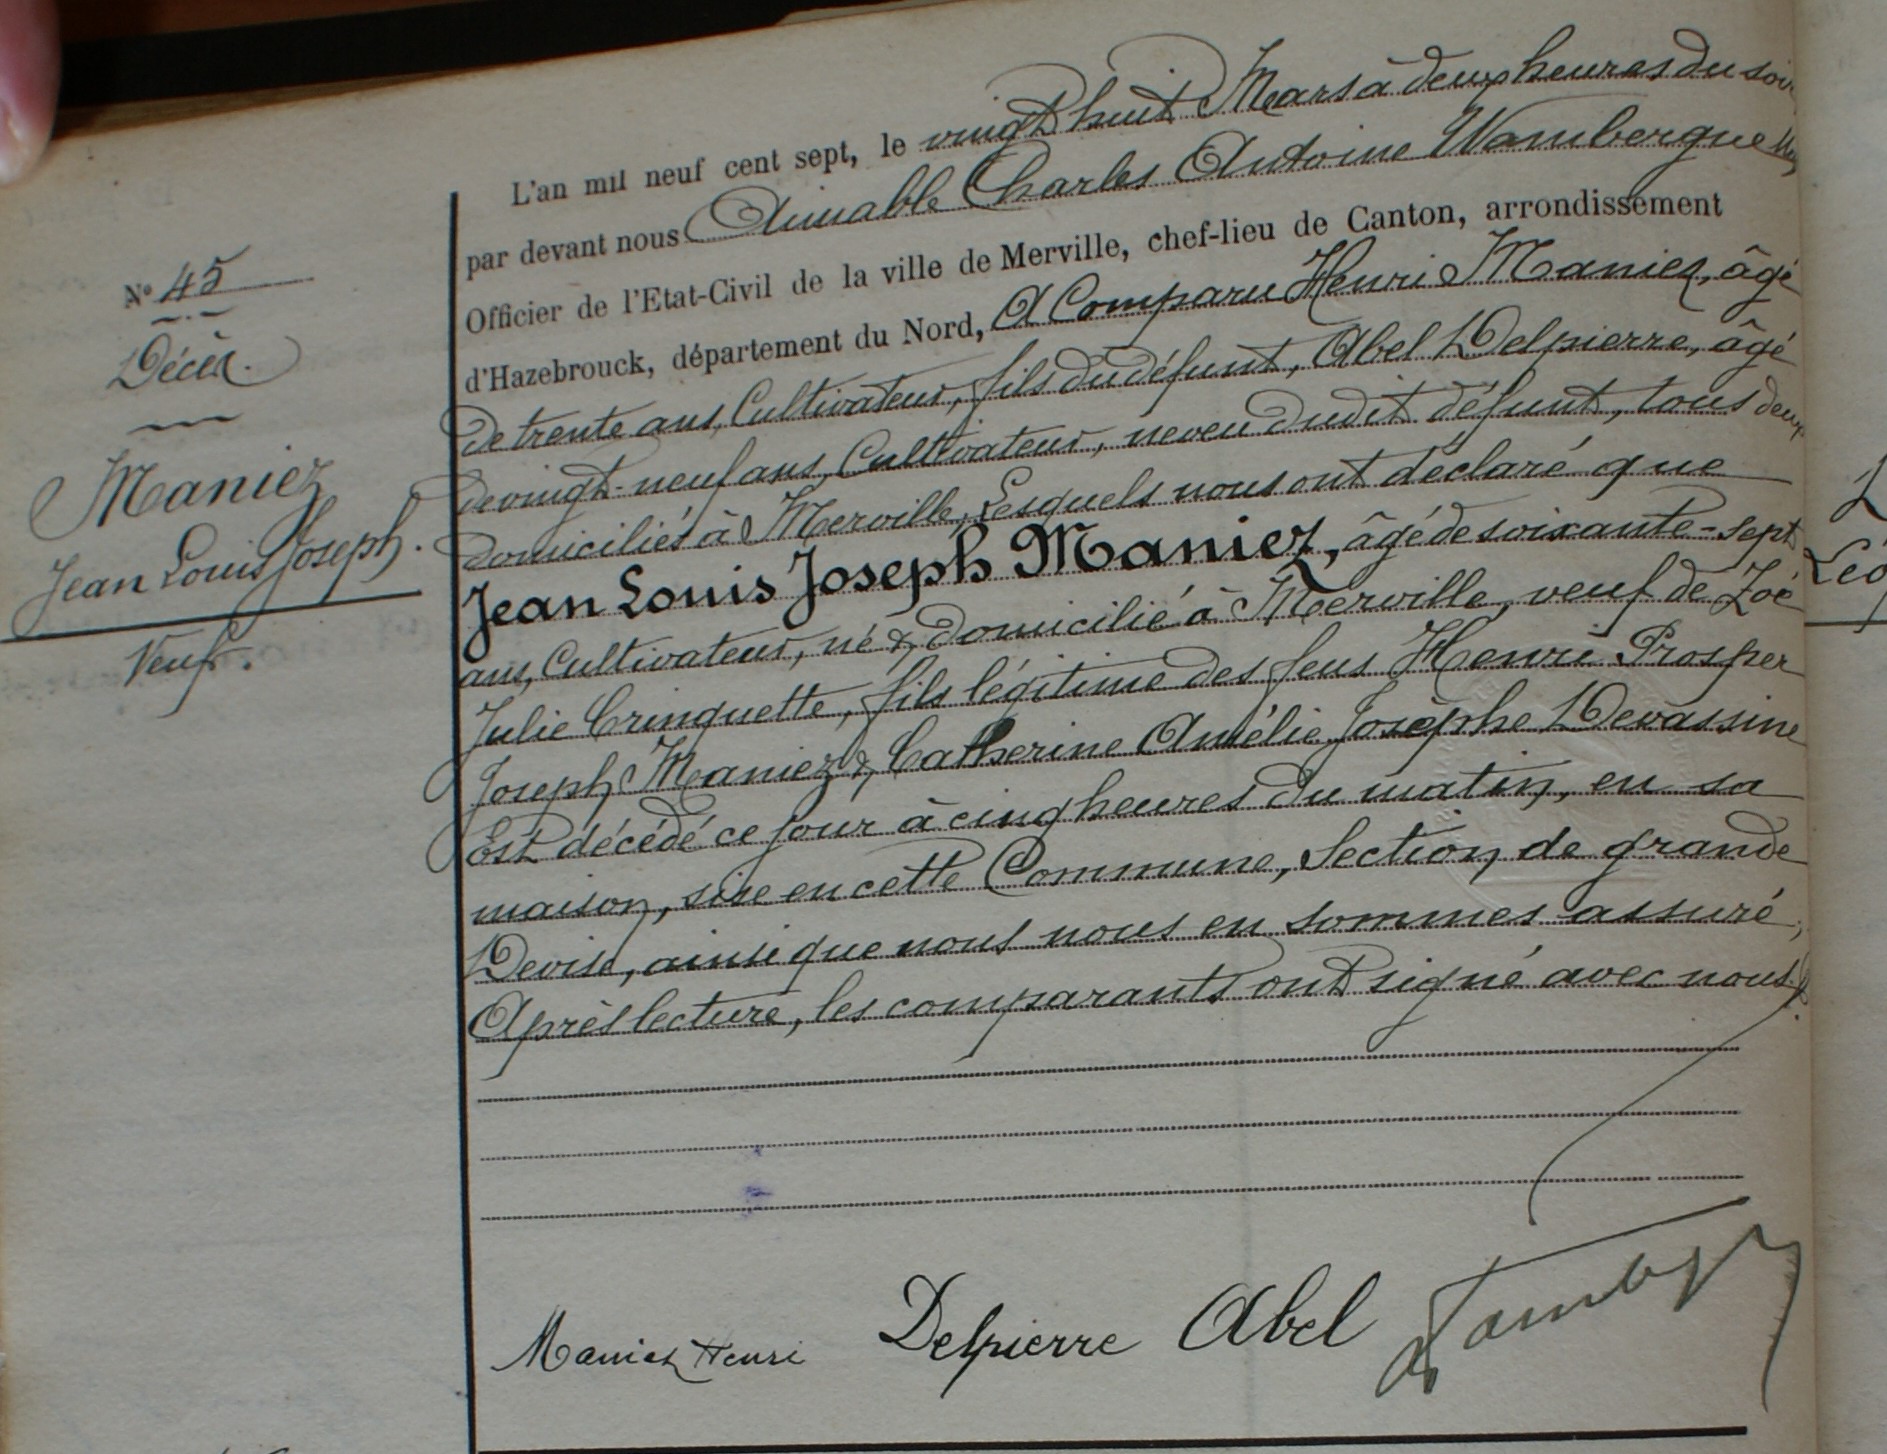 N° 45
Décès.
Maniez
Jean Louis Joseph.
Veuf.
L'an mil neuf cent sept, le vingt huit Mars à deux heures du soir
par devant nous Aimable Charles Antoine Wambergue
Officier de l'Etat-Civil de la ville de Merville, chef-lieu de Canton, arrondissement
d'Hazebrouck, département du Nord, A Comparu Henri Maniez, âgé
de trente ans, Cultivateur, fils du défunt, Abel Delpierre, âgé
de vingt-neuf ans, Cultivateur, neveu dudit défunt, tous deux
domiciliés à Merville, Lesquels nous ont déclaré que
Jean Louis Joseph Maniez, âgé de soixante-sept
ans, Cultivateur, né & domicilié à Merville, veuf de Zoé
Julie Crinquette, fils légitime des feus Henri Prosper
Joseph Maniez & Catherine Amélie Josèphe Devassine
Est décédé ce jour à cinq heures du matin, en sa
maison, sise en cette Commune, Section de grande
Devise, ainsi que nous nous en sommes assuré,
Après lecture, les comparants ont signé avec nous.
Maniez Henri Delpierre Abel